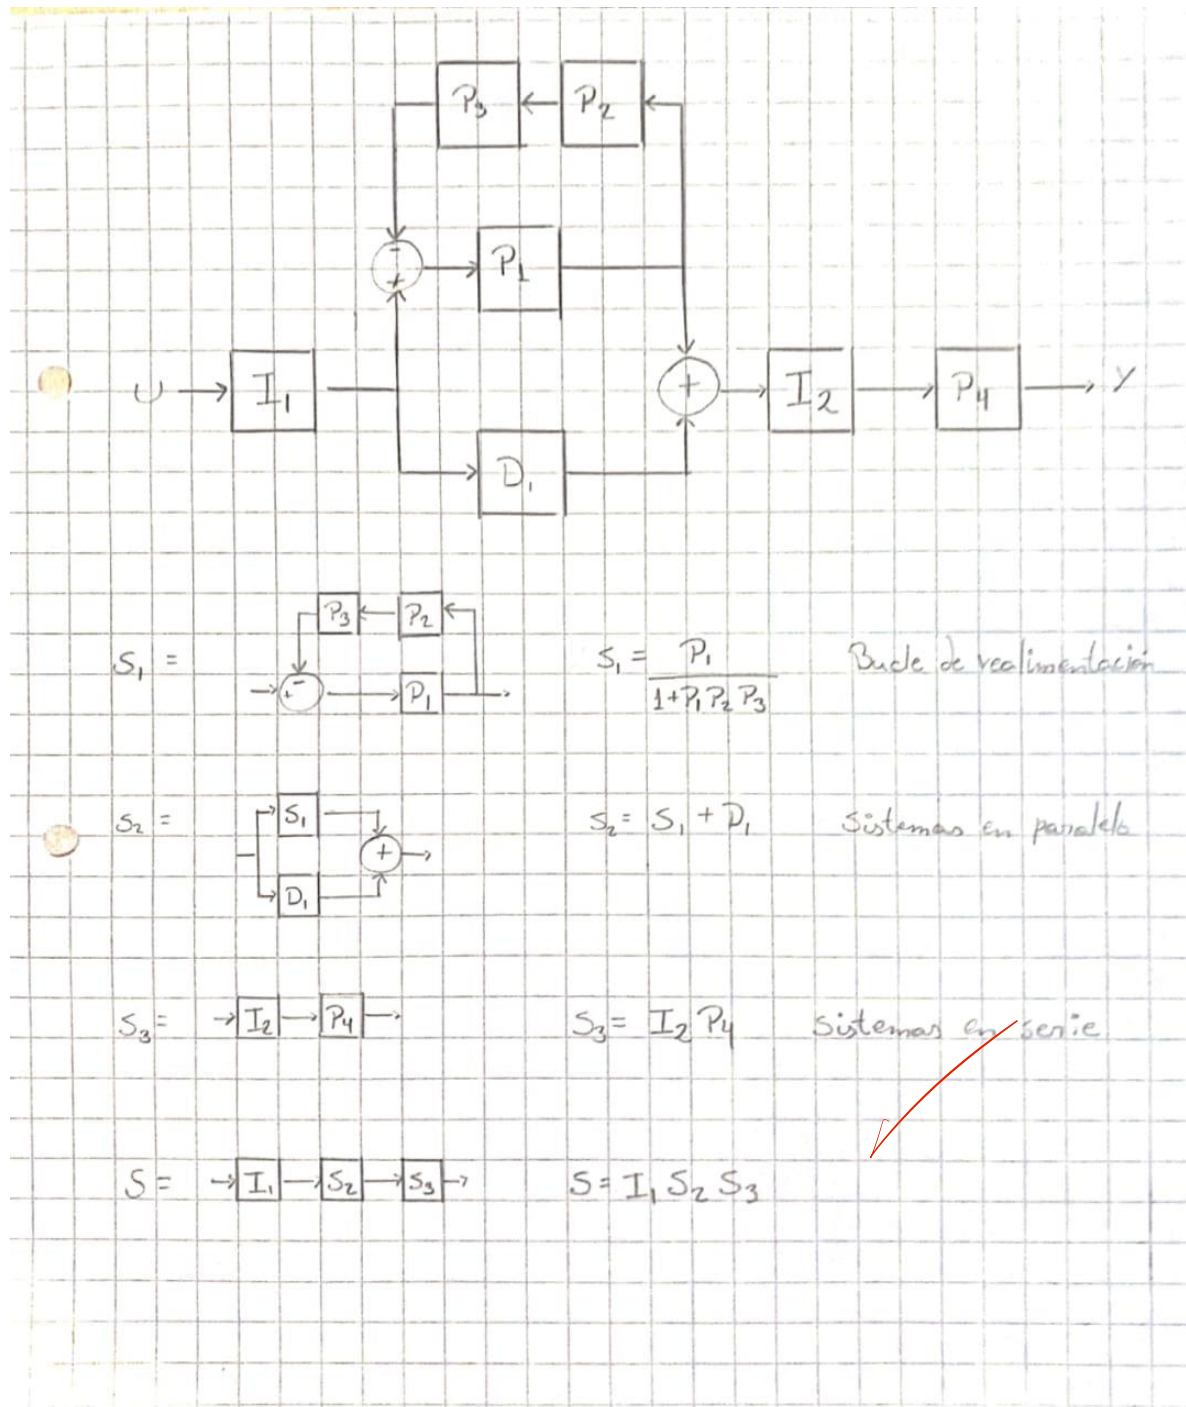 P3 P2
- + P1
U I1 + I2 P4 Y
D1
S1 = P3 P2 + - P1 S1 = P1 / 1+P1 P2 P3 Bucle de realimentación
S2 = S1 + D1 S2 = S1 + D1 Sistemas en paralelo
S3 = I2 P4 S3 = I2 P4 Sistemas en serie
S = I1 S2 S3 S = I1 S2 S3